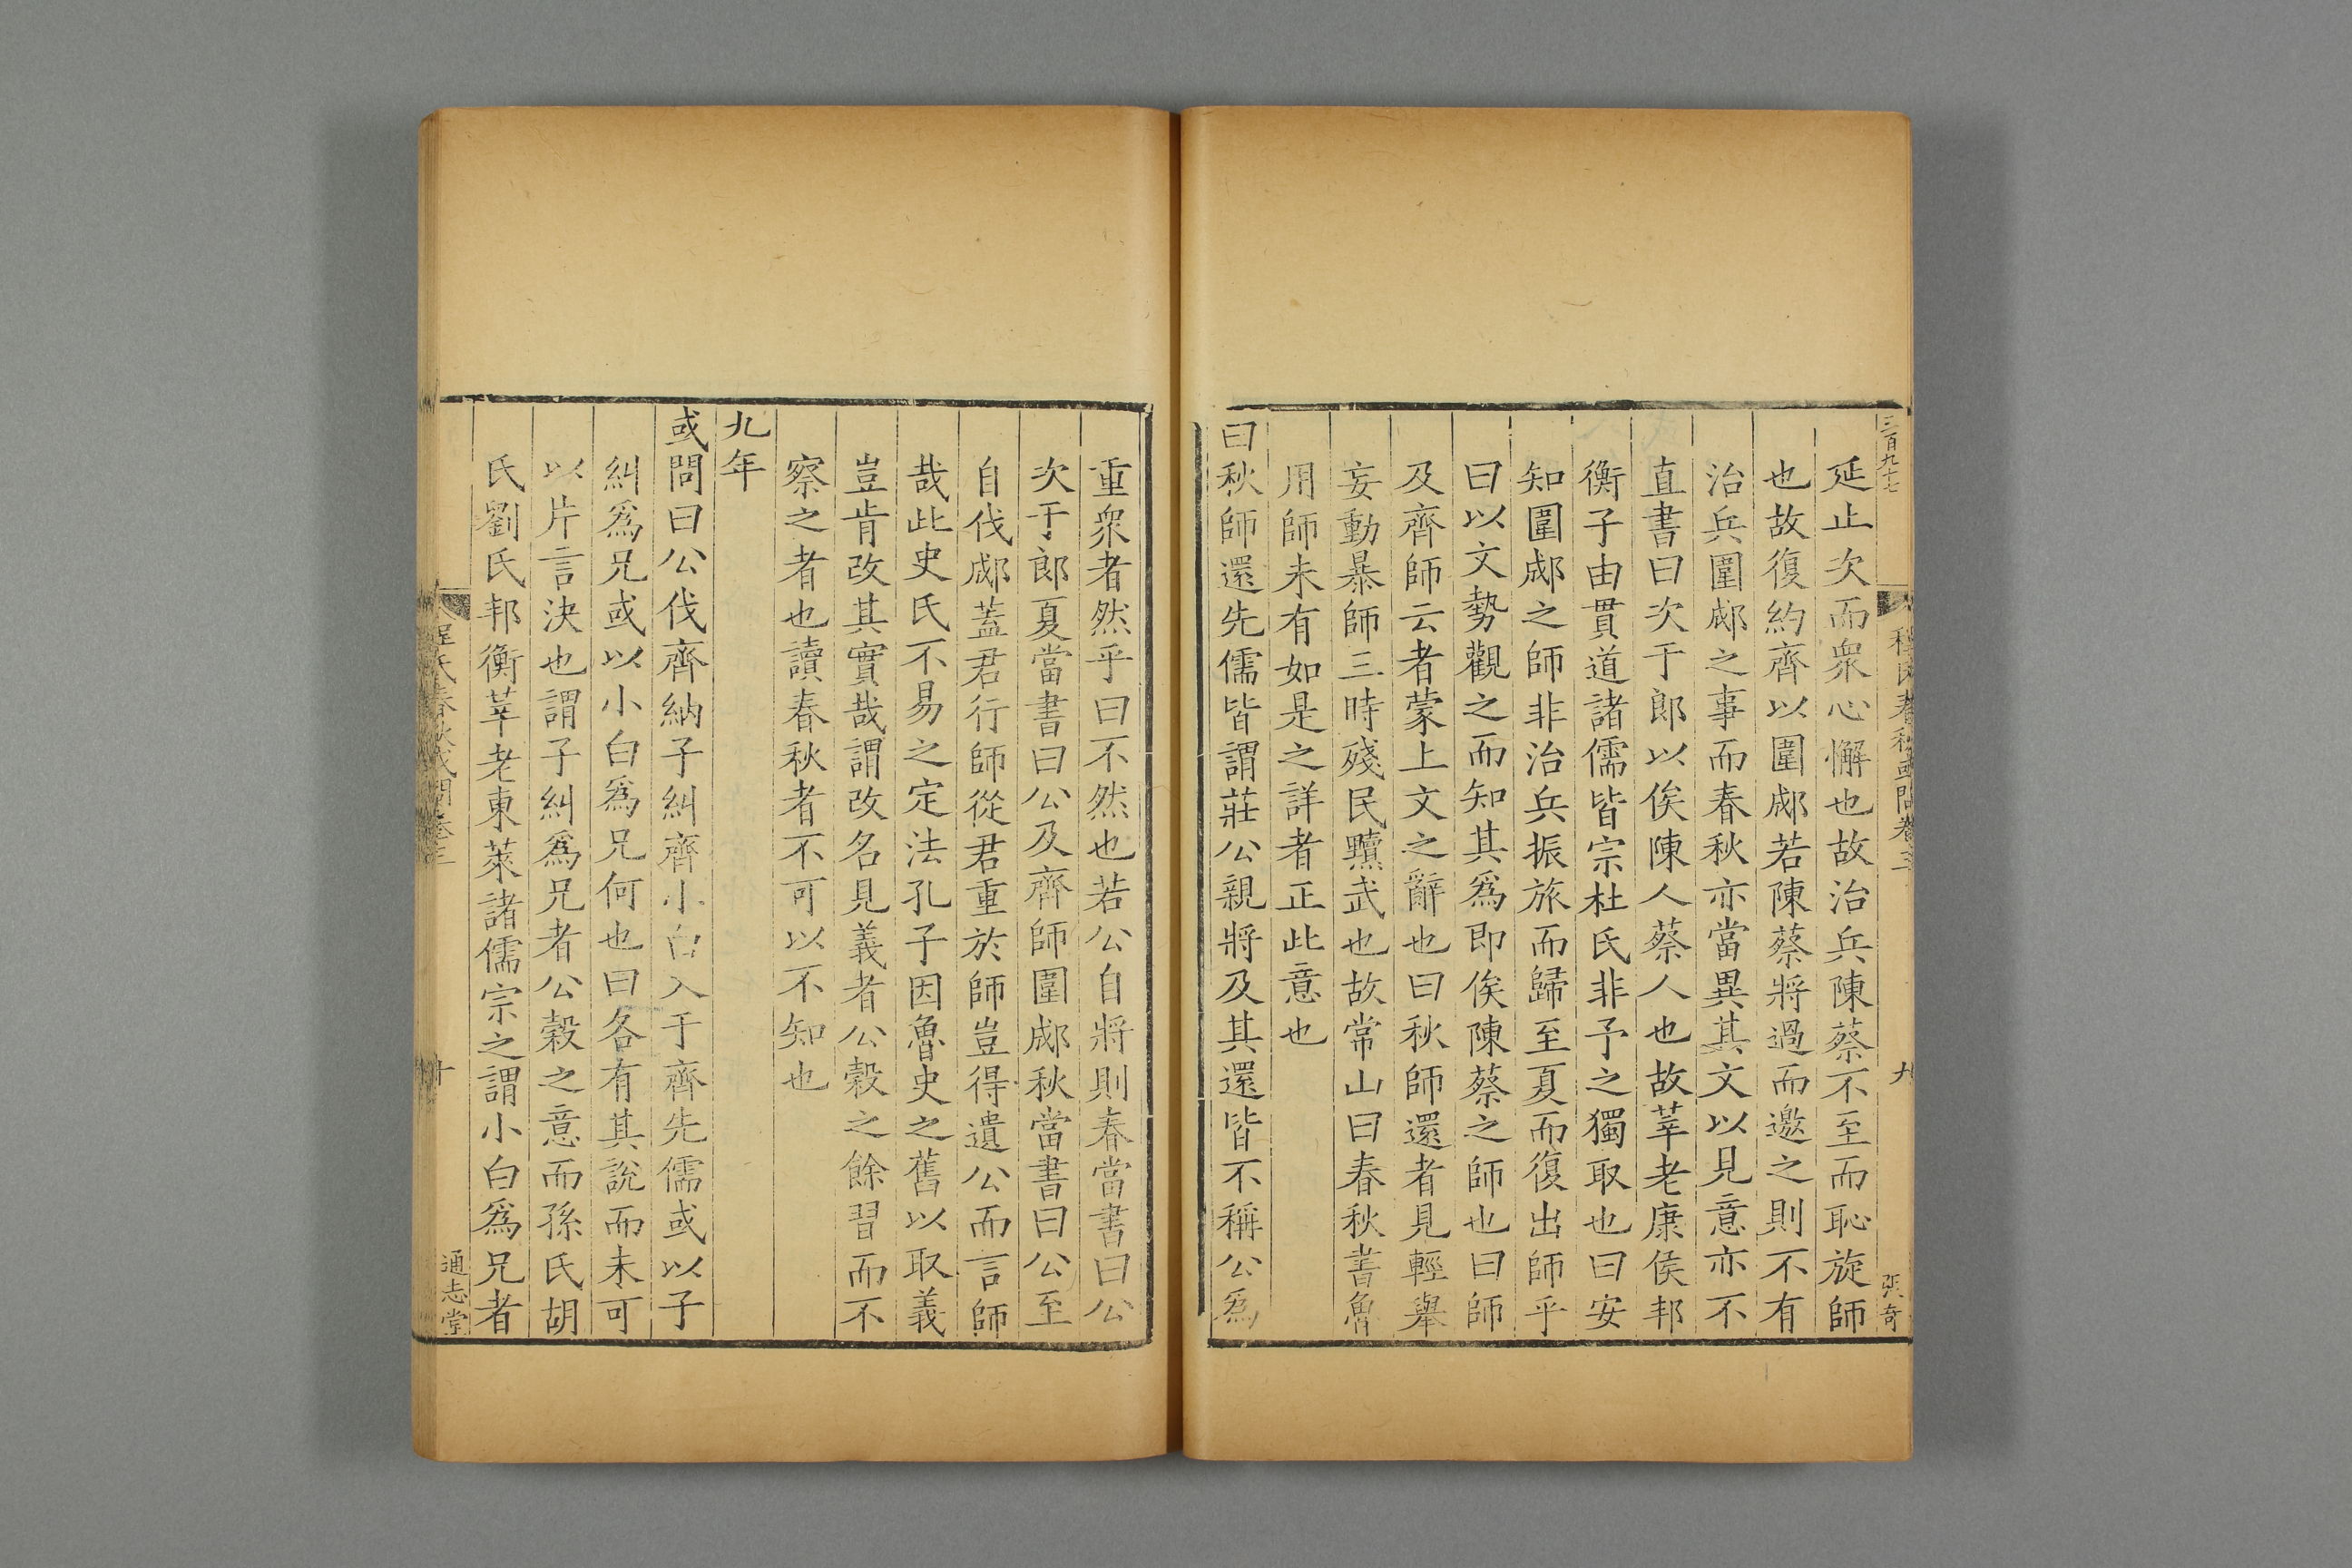 三百九十七
程氏春秋或問卷三
九
張奇
延止次而衆心懈也故治兵陳蔡不至而恥旋師
也故復約齊以圍郕若陳蔡將過而邀之則不有
治兵圍郕之事而春秋亦當異其文以見意亦不
直書曰次于郎以俟陳人蔡人也故莘老康侯邦
衡子由貫道諸儒皆宗杜氏非予之獨取也曰安
知圍郕之師非治兵振旅而歸至夏而復出師乎
曰以文勢觀之而知其爲即俟陳蔡之師也曰師
及齊師云者蒙上文之辭也曰秋師還者見輕舉
妄動暴師三時殘民黷武也故常山曰春秋書魯
用師未有如是之詳者正此意也
曰秋師還先儒皆謂莊公親將及其還皆不稱公爲
重衆者然乎曰不然也若公自將則春當書曰公
次于郎夏當書曰公及齊師圍郕秋當書曰公至
自伐郕蓋君行師從君重於師豈得遺公而言師
哉此史氏不易之定法孔子因魯史之舊以取義
豈肯改其實哉謂改名見義者公榖之餘習而不
察之者也讀春秋者不可以不知也
九年
或問曰公伐齊納子糾齊小白入于齊先儒或以子
糾爲兄或以小白爲兄何也曰各有其說而未可
以片言決也謂子糾爲兄者公榖之意而孫氏胡
氏劉氏邦衡莘老東萊諸儒宗之謂小白爲兄者
程氏春秋或問卷三
十
通志堂